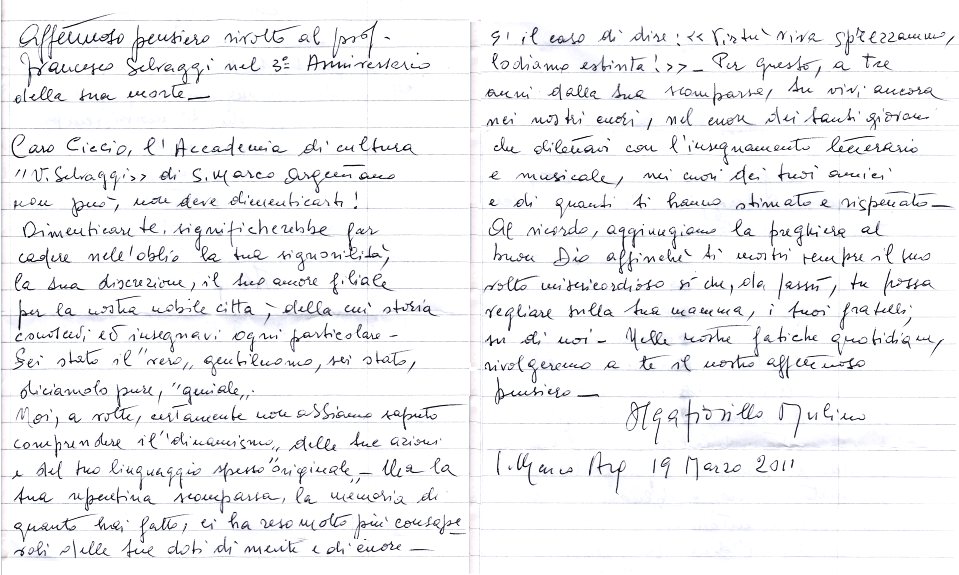 Affettuoso pensiero rivolto al prof.
Francesco Selvaggi nel 3º Anniversario
della sua morte_
Caro Ciccio, l'Accademia di cultura
"V. Selvaggi" di S. Marco Argentano
non può, non deve dimenticarti!
Dimenticarte, significherebbe far
cadere nell'oblio la tua signorilità,
la tua discrezione, il tuo amore filiale
per la nostra nobile città, della cui storia
conoscevi ed insegnavi ogni particolare_
Sei stato il "vero" gentiluomo, sei stato,
diciamolo pure, "geniale".
Noi, a volte, certamente non abbiamo saputo
comprendere il "dinamismo" delle tue azioni
e del tuo linguaggio spesso "originale"_ Ma la
tua repentina scomparsa, la memoria di
quanto hai fatto, ci ha reso molto più consape
voli delle tue doti di mente e di cuore_
E' il caso di dire: << Virtù viva sprezzammo,
lodiamo estinta! >>_ Per questo, a tre
anni dalla tua scomparsa, tu vivi ancora
nei nostri cuori, nel cuore dei tanti giovani
che dilettavi con l'insegnamento letterario
e musicale, nei cuori dei tuoi amici
e di quanti ti hanno stimato e rispettato_
Al ricordo, aggiungiamo la preghiera al
buon Dio affinchè ti mostri sempre il suo
volto misericordioso sì che, da lassù, tu possa
vegliare sulla tua mamma, i tuoi fratelli,
su di noi_ Nelle nostre fatiche quotidiane,
rivolgeremo a te il nostro affettuoso
pensiero_
Olga Fiorillo Mulino
S. Marco Arg 19 Marzo 2011